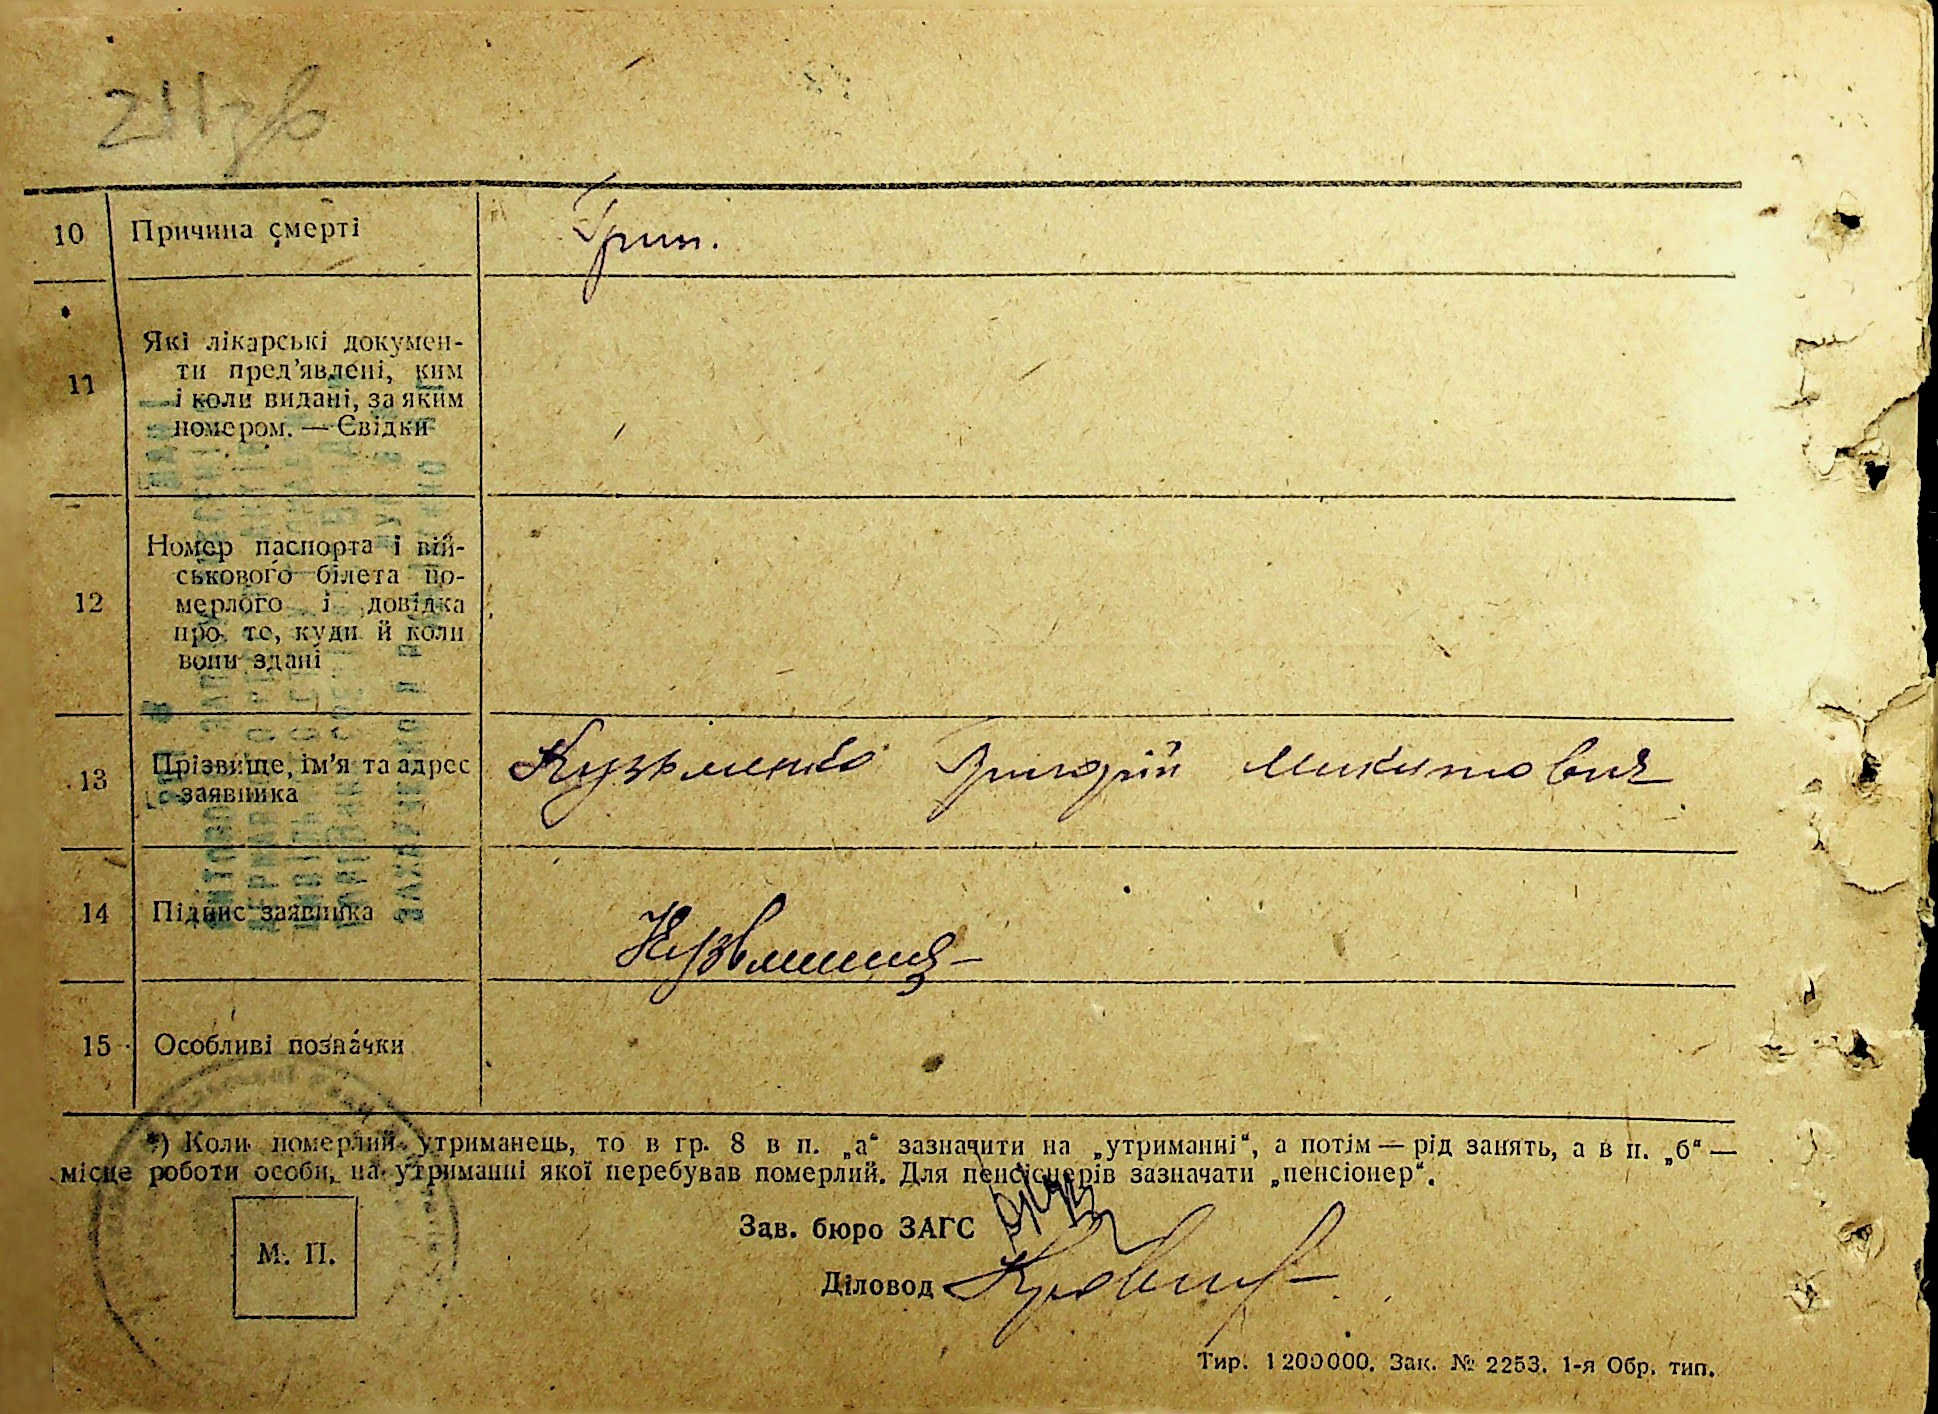 211зв
10 Причина смерті Грип.
11 Які лікарські докумен-
ти пред’явлені, ким
і коли видані, за яким
номером. — Свідки
12 Номер паспорта і вій-
ськового білета по-
мерлого і довідка
про те, куди й коли
вони здані
13 Прізвище, ім’я та адрес
заявника Кузьменко Григорій Микитович
14 Підпис заявника
15 Особливі позначки
*) Коли померлий утриманець, то в гр. 8 в п. „а“ зазначити на „утриманні“, а потім — рід занять, а в п. „б“ —
місце роботи особи, на утриманні якої перебував померлий. Для пенсіонерів зазначати „пенсіонер“.
Зав. бюро ЗАГС
М. П.
Діловод
Тир. 1200000. Зак. № 2253. 1-я Обр. тип.